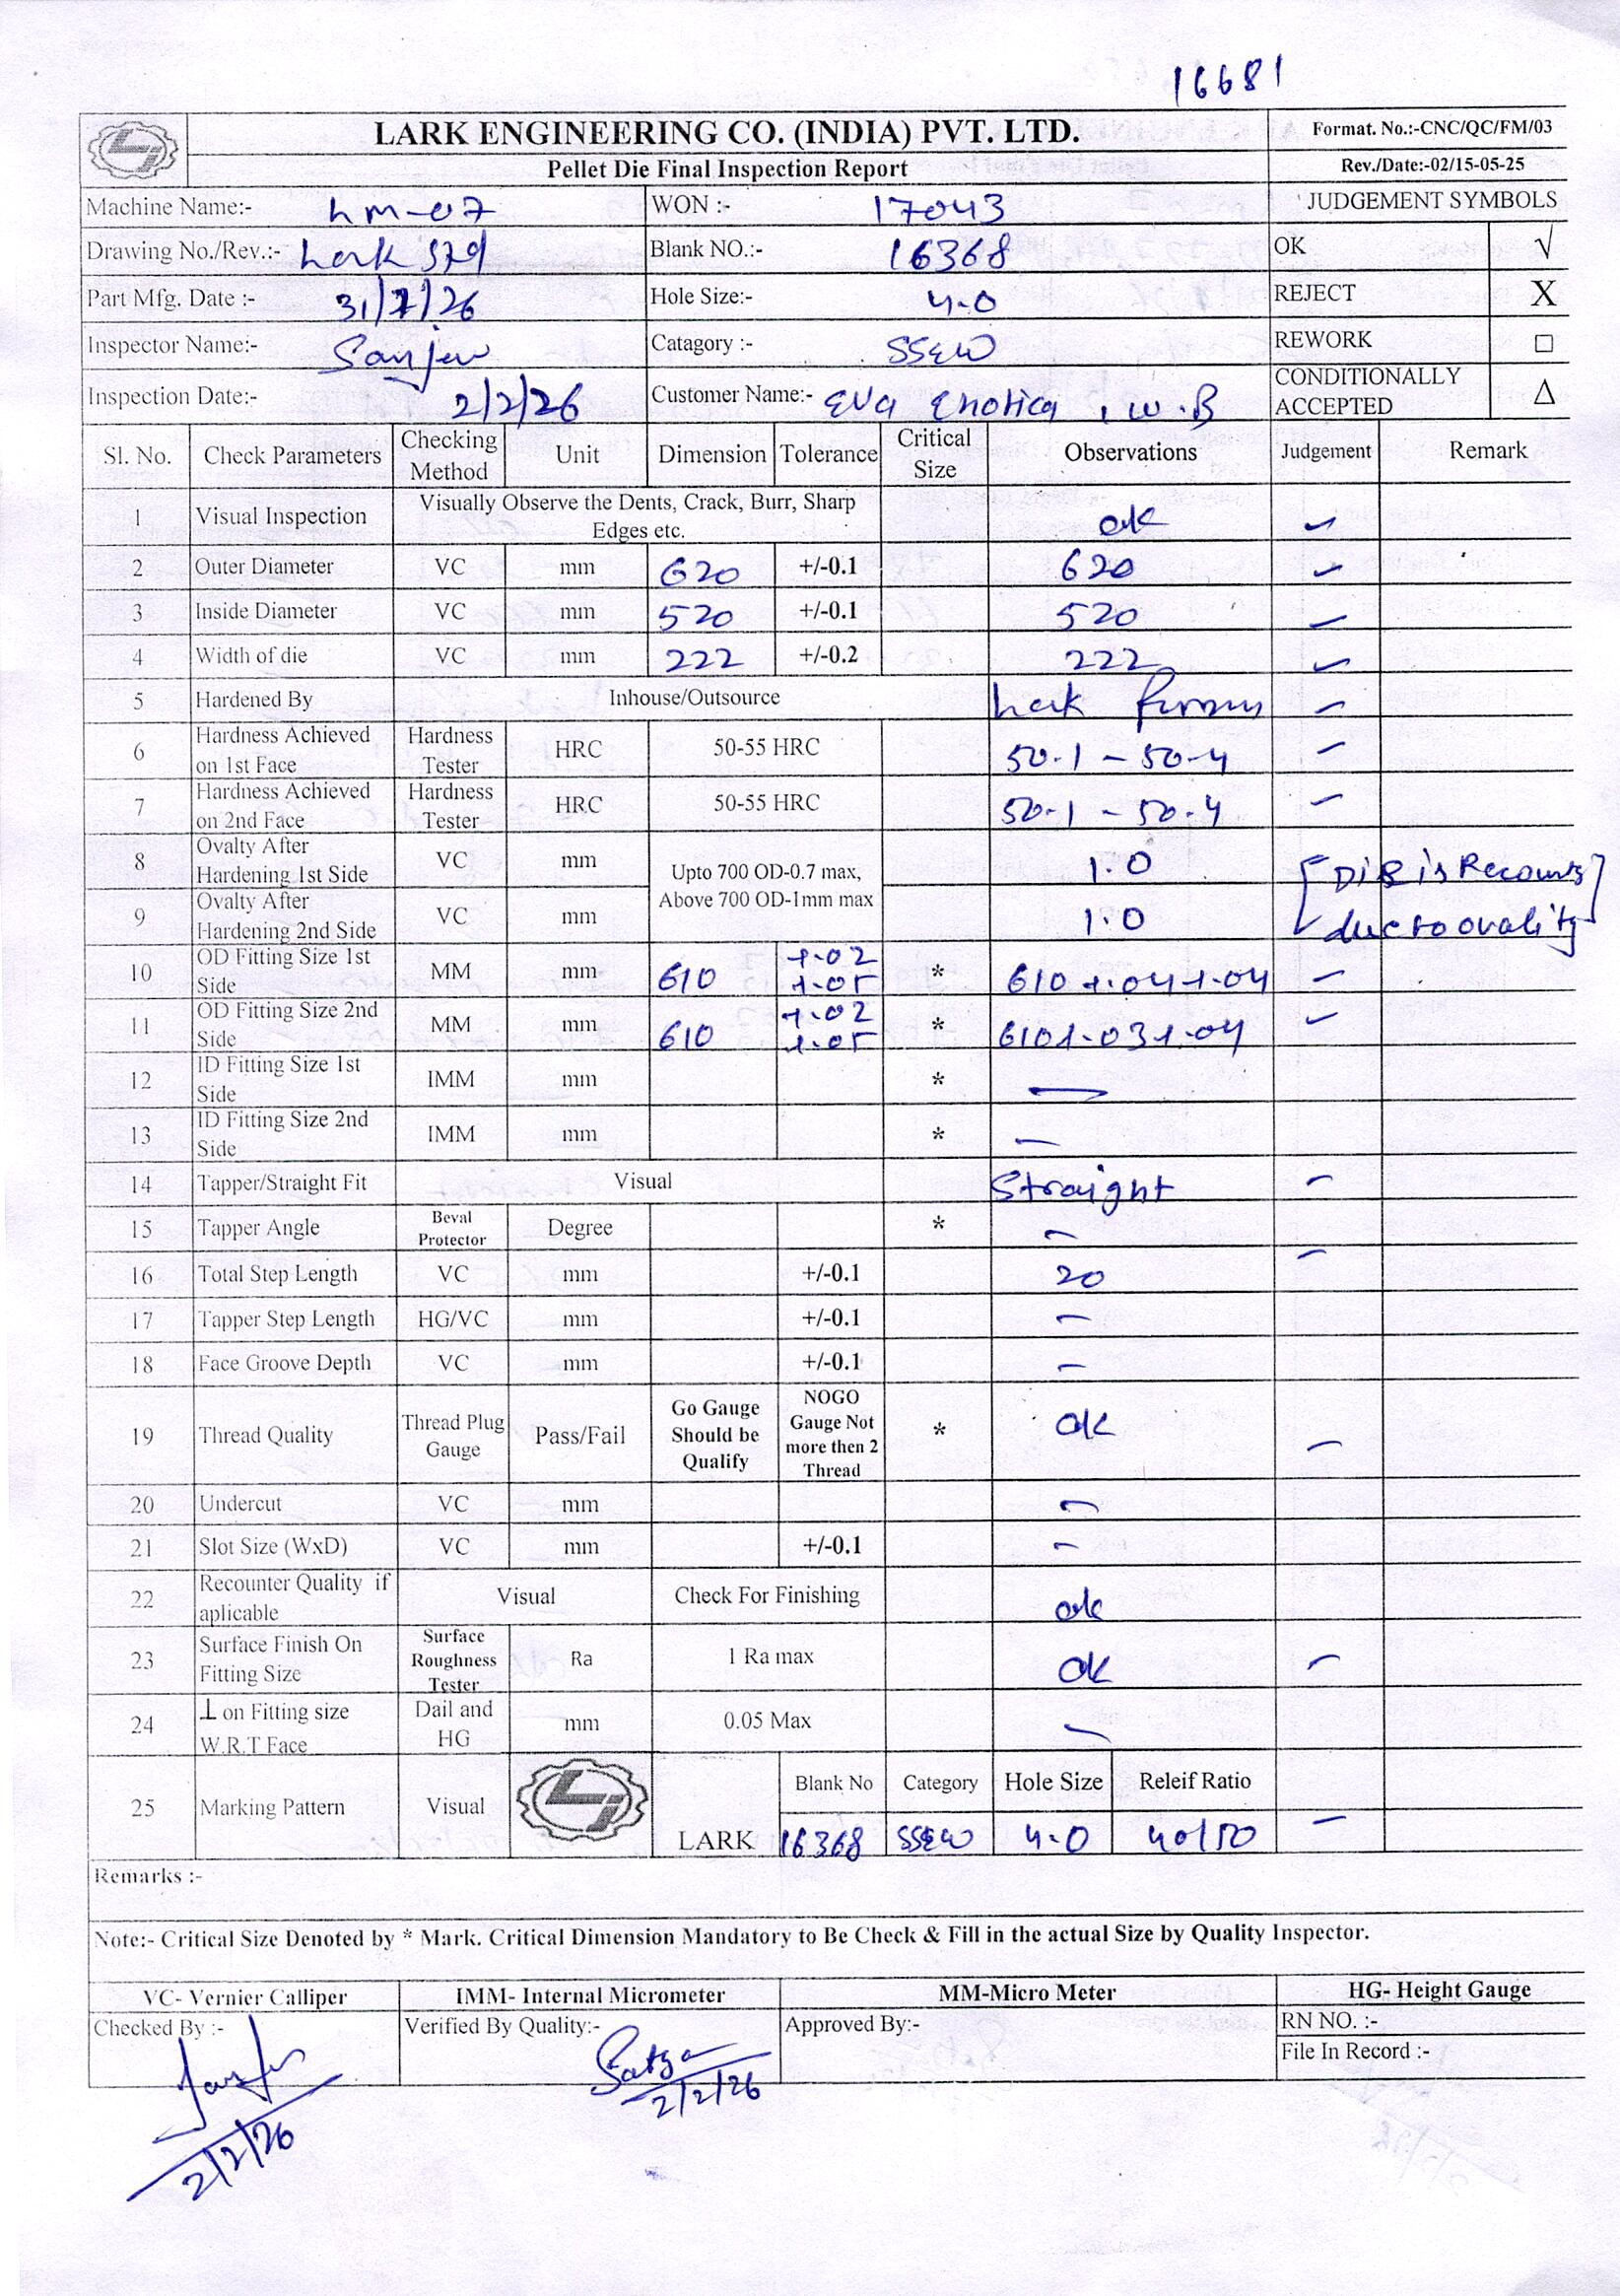 16681
LARK ENGINEERING CO. (INDIA) PVT. LTD.
Format. No.:-CNC/QC/FM/03
Pellet Die Final Inspection Report
Rev./Date:-02/15-05-25
Machine Name:- LM-07 WON :- 17043 JUDGEMENT SYMBOLS
Drawing No./Rev.:- Lark Std Blank NO.:- 16368 OK √
Part Mfg. Date :- 31/1/26 Hole Size:- 4.0 REJECT X
Inspector Name:- Sanjew Catagory :- SSEW REWORK □
Inspection Date:- 2/2/26 Customer Name:- Eva Exotica, W.B CONDITIONALLY ACCEPTED Δ
Sl. No. Check Parameters Checking Method Unit Dimension Tolerance Critical Size Observations Judgement Remark
1 Visual Inspection Visually Observe the Dents, Crack, Burr, Sharp Edges etc. ok ✓
2 Outer Diameter VC mm 620 +/-0.1 620 ✓
3 Inside Diameter VC mm 520 +/-0.1 520 ✓
4 Width of die VC mm 222 +/-0.2 222 ✓
5 Hardened By Inhouse/Outsource Lark ✓
6 Hardness Achieved on 1st Face Hardness Tester HRC 50-55 HRC 50.1 - 50.4 ✓
7 Hardness Achieved on 2nd Face Hardness Tester HRC 50-55 HRC 50.1 - 50.4 ✓
8 Ovalty After Hardening 1st Side VC mm Upto 700 OD-0.7 max, Above 700 OD-1mm max 1.0 Die is
9 Ovalty After Hardening 2nd Side VC mm 1.0 due to ovality
10 OD Fitting Size 1st Side MM mm 610 +.02 +.05 * 610 +.04 +.04 ✓
11 OD Fitting Size 2nd Side MM mm 610 +.02 +.05 * 610 +.03 +.04 ✓
12 ID Fitting Size 1st Side IMM mm * —
13 ID Fitting Size 2nd Side IMM mm * —
14 Tapper/Straight Fit Visual Straight ✓
15 Tapper Angle Beval Protector Degree * —
16 Total Step Length VC mm +/-0.1 20 ✓
17 Tapper Step Length HG/VC mm +/-0.1 —
18 Face Groove Depth VC mm +/-0.1 —
19 Thread Quality Thread Plug Gauge Pass/Fail Go Gauge Should be Qualify NOGO Gauge Not more then 2 Thread * ok ✓
20 Undercut VC mm —
21 Slot Size (WxD) VC mm +/-0.1 —
22 Recounter Quality if aplicable Visual Check For Finishing ok
23 Surface Finish On Fitting Size Surface Roughness Tester Ra 1 Ra max ok ✓
24 ⊥ on Fitting size W.R.T Face Dail and HG mm 0.05 Max —
25 Marking Pattern Visual LARK Blank No Category Hole Size Releif Ratio
16368 SSEW 4.0 40/50 ✓
Remarks :-
Note:- Critical Size Denoted by * Mark. Critical Dimension Mandatory to Be Check & Fill in the actual Size by Quality Inspector.
VC- Vernier Calliper IMM- Internal Micrometer MM-Micro Meter HG- Height Gauge
Checked By :- Verified By Quality:- Satya Approved By:- RN NO. :-
File In Record :-
2/2/26
2/2/26